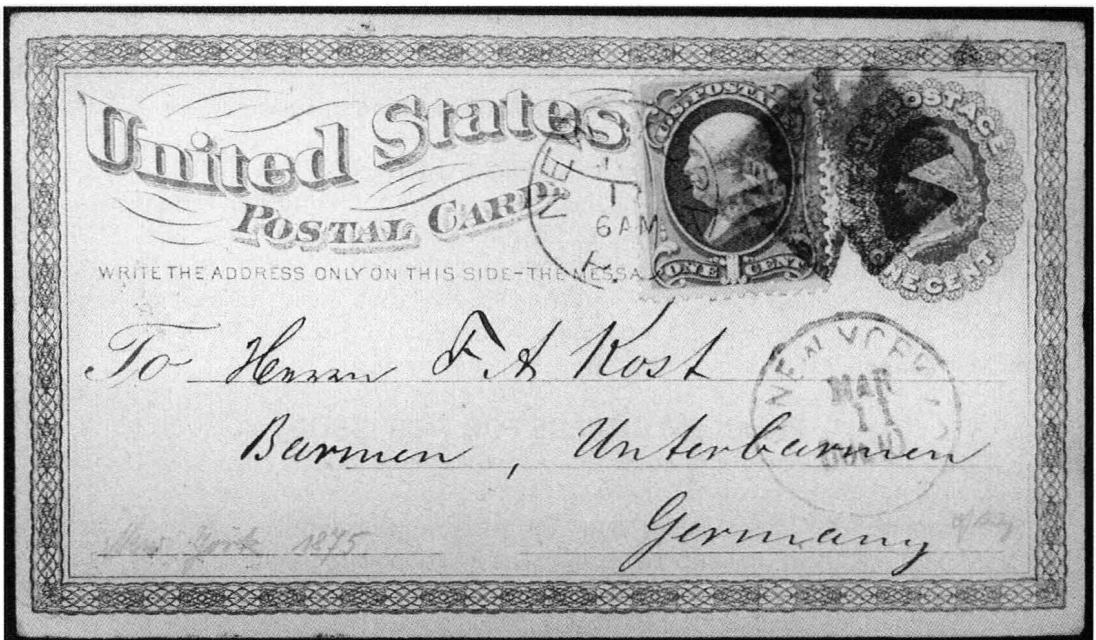 United States
POSTAL CARD.
WRITE THE ADDRESS ONLY ON THIS SIDE-THE MESSA
U.S. POSTAGE
ONE CENT
U.S. POSTAL
ONE 1 CENT
NEW
11
6 AM
To Herrn F A Kost
Barmen, Unterbarmen
Germany
NEW YORK
MAR
11
New York 1875